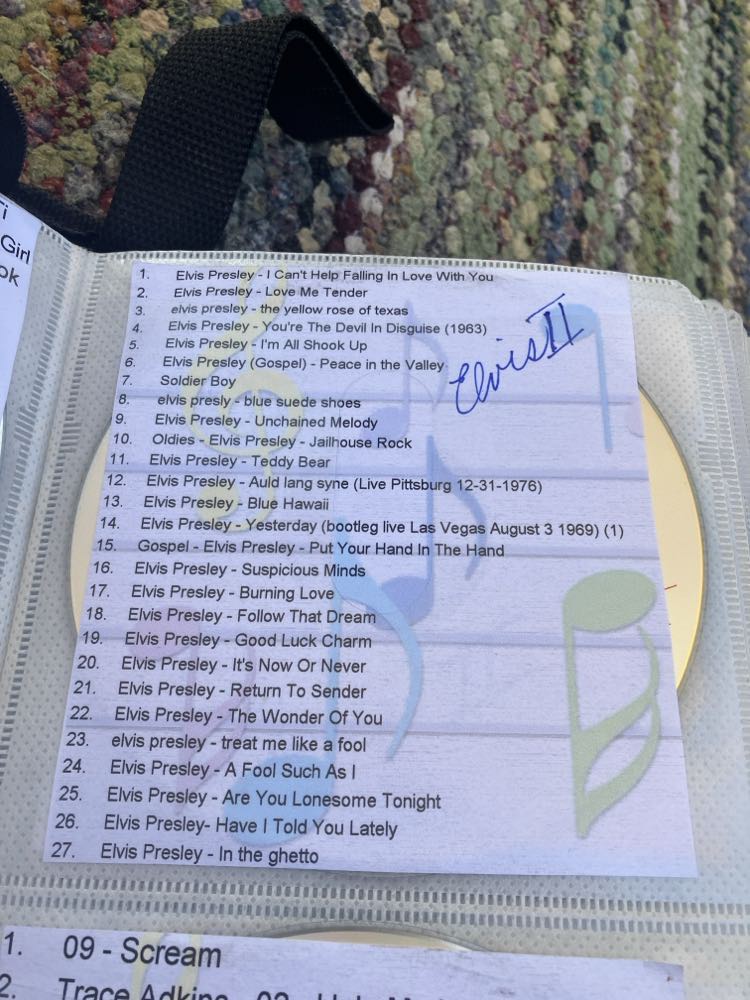 Girl
1. Elvis Presley - I Can't Help Falling In Love With You
2. Elvis Presley - Love Me Tender
3. elvis presley - the yellow rose of texas
4. Elvis Presley - You're The Devil In Disguise (1963)
5. Elvis Presley - I'm All Shook Up
6. Elvis Presley (Gospel) - Peace in the Valley
7. Soldier Boy
8. elvis presly - blue suede shoes
9. Elvis Presley - Unchained Melody
10. Oldies - Elvis Presley - Jailhouse Rock
11. Elvis Presley - Teddy Bear
12. Elvis Presley - Auld lang syne (Live Pittsburg 12-31-1976)
13. Elvis Presley - Blue Hawaii
14. Elvis Presley - Yesterday (bootleg live Las Vegas August 3 1969) (1)
15. Gospel - Elvis Presley - Put Your Hand In The Hand
16. Elvis Presley - Suspicious Minds
17. Elvis Presley - Burning Love
18. Elvis Presley - Follow That Dream
19. Elvis Presley - Good Luck Charm
20. Elvis Presley - It's Now Or Never
21. Elvis Presley - Return To Sender
22. Elvis Presley - The Wonder Of You
23. elvis presley - treat me like a fool
24. Elvis Presley - A Fool Such As I
25. Elvis Presley - Are You Lonesome Tonight
26. Elvis Presley- Have I Told You Lately
27. Elvis Presley - In the ghetto
Elvis II
1. 09 - Scream
2. Trace Adkins - 02